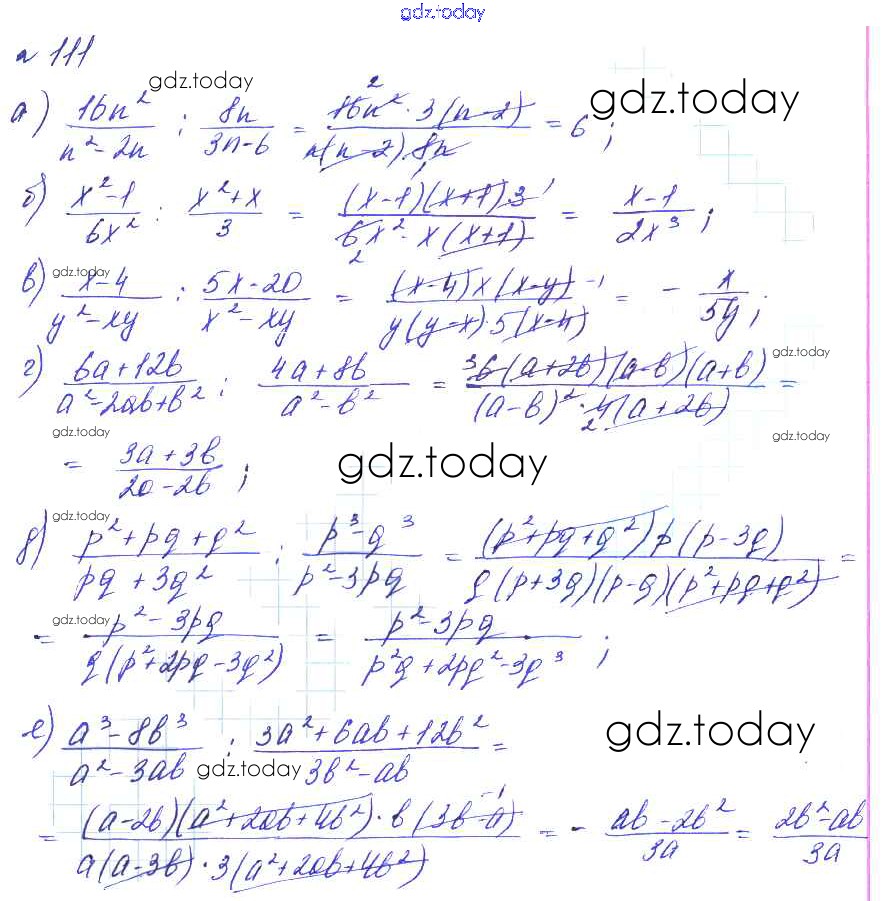 gdz.today
№ 111
gdz.today
gdz.today
а) 16n²/(n²-2n) : 8n/(3n-6) = 16n²·3(n-2)/(n(n-2)·8n) = 6;
б) (x²-1)/6x² : (x²+x)/3 = (x-1)(x+1)3/(6x²·x(x+1)) = (x-1)/2x³;
gdz.today
в) (x-4)/(y²-xy) : (5x-20)/(x²-xy) = (x-4)x(x-y)/(y(y-x)·5(x-4)) = - x/5y;
gdz.today
г) (6a+12b)/(a²-2ab+b²) : (4a+8b)/(a²-b²) = 6(a+2b)(a-b)(a+b)/((a-b)²·4(a+2b)) =
gdz.today
gdz.today
= (3a+3b)/(2a-2b);
gdz.today
gdz.today
д) (p²+pq+q²)/(pq+3q²) : (p³-q³)/(p²-3pq) = (p²+pq+q²)p(p-3q)/(q(p+3q)(p-q)(p²+pq+q²)) =
gdz.today
= (p²-3pq)/(q(p²+2pq-3q²)) = (p²-3pq)/(p²q+2pq²-3q³);
е) (a³-8b³)/(a²-3ab) : (3a²+6ab+12b²)/(3b²-ab) =
gdz.today
gdz.today
= (a-2b)(a²+2ab+4b²)·b(3b-a)/(a(a-3b)·3(a²+2ab+4b²)) = - (ab-2b²)/3a = (2b²-ab)/3a